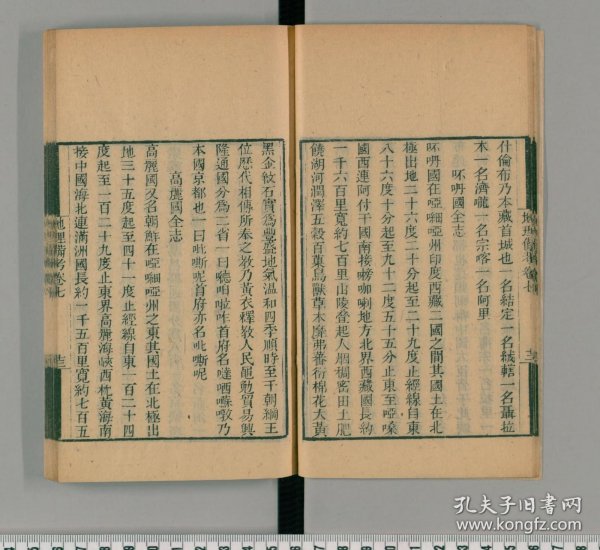 什倫布乃本藏首城也一名結定一名絨轄一名聶拉
木一名濟嚨一名宗喀一名阿里
呸㖠國全志
呸㖠國在啞細啞州印度西藏二國之間其國土在北
極出地二十六度二十分起至二十九度止經線自東
八十六度十分起至九十二度五十五分止東至啞嗓
國西連阿付干國南接嗙咖喇地方北界西藏國長約
一千六百里寬約七百里山陵聳起人稠密田土肥
饒湖河潤澤五穀百菓鳥獸草木靡弗蕃衍棉花大黃
黑金紋石實為豐盈地氣溫和四季順時至于朝綱王
位歷代相傳所奉之教乃黃衣釋教人民勤貿易興
隆通國分為二省一曰
本國京都也一曰吡嘶呢首府亦名吡嘶呢
高麗國全志
高麗國又名朝鮮在啞細啞州之東其國土在北極出
地三十五度起至四十一度止經線自東一百二十四
度起至一百二十九度止東界高麗海峽西枕黃海南
接中國海北連滿洲國長約一千五百里寬約七百五
地理備考卷七
孔夫子旧书网
www.kongfz.com